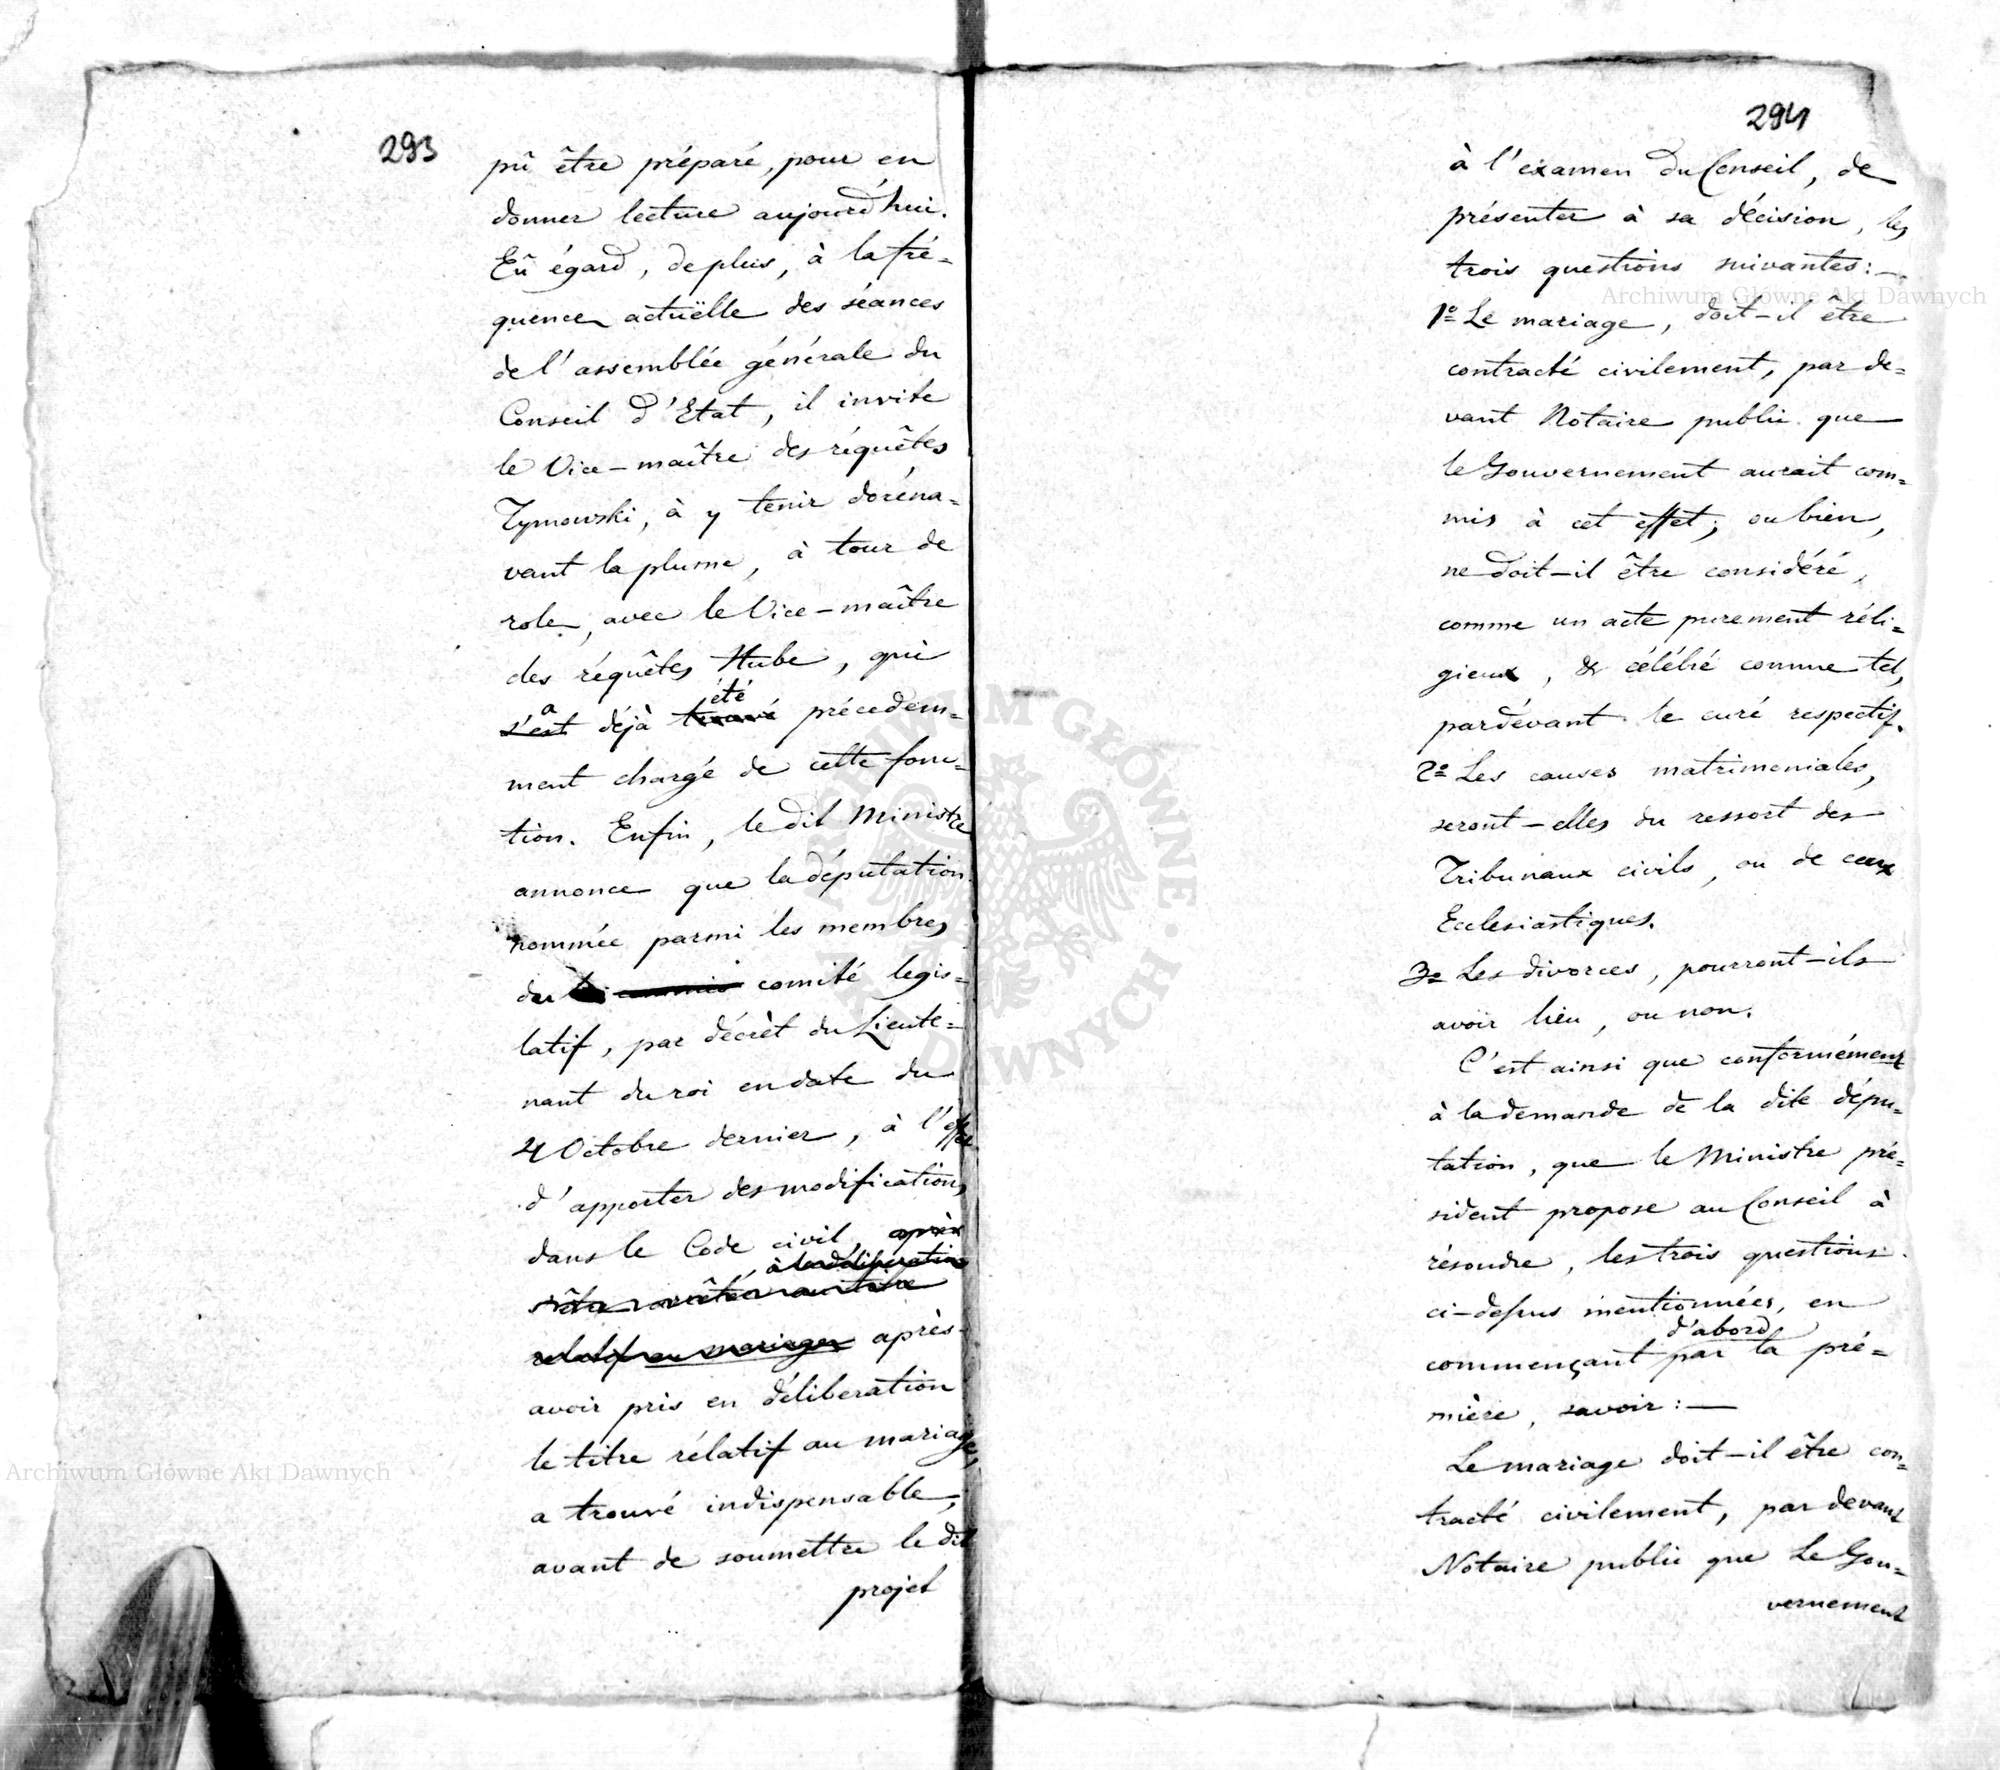 293
pû être préparé, pour en
donner lecture aujourd'hui.
Eû égard, de plus, à la fré=
quence actuëlle des séances
de l'assemblée générale du
Conseil d'Etat, il invite
le Vice-maître des réquêtes
Tymowski, à y tenir doréna=
vant la plume, à tour de
role, avec le Vice-maître
des réquêtes Hube, qui
a été
s'est déjà trouvé précedem=
ment chargé de cette fonc=
tion. Enfin, le dit Ministre
annonce que la députation
nommée parmi les membres
du comité legis=
latif, par décrèt du Lieute=
nant du roi en date du
4 Octobre dernier, à l'effet
d'apporter des modifications
dans le Code civil, après
à la déliberation
relatif au mariage après
avoir pris en déliberation
le titre rélatif au mariage,
a trouvé indispensable,
avant de soumettre le dit
projet
294
à l'examen du Conseil, de
présenter à sa décision, les
trois questions suivantes: —
1º Le mariage, doit-il être
contracté civilement, par de=
vant Notaire public que
le Gouvernement aurait com=
mis à cet èffet; ou bien,
ne doit-il être considéré,
comme un acte purement réli=
gieux, & célébré comme tel,
pardévant le curé respectif.
2º Les causes matrimoniales,
seront-elles du ressort des
Tribunaux civils, ou de ceux
Ecclesiastiques.
3º Les divorces, pourront-ils
avoir lieu, ou non.
C'est ainsi que conformément
à la demande de la dite dépu=
tation, que le Ministre pré=
sident propose au Conseil à
résoudre, les trois questions
ci-dessus mentionnées, en
d'abord
commençant par la pré=
mière, savoir: —
Le mariage doit-il être con=
tracté civilement, par devant
Notaire public que Le Gou=
vernement
Archiwum Główne Akt Dawnych
Archiwum Główne Akt Dawnych
ARCHIWUM GŁÓWNE AKT DAWNYCH